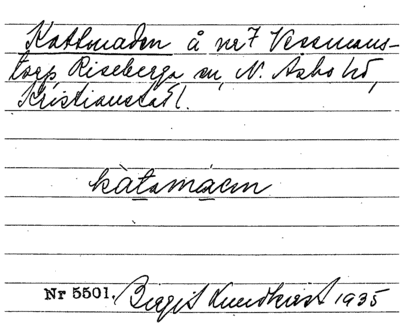 Kattmaden å nr 7 Vessmans-
torp, Riseberga sn, N. Åsbo hd,
Kristianstad l.
kàtamàcen
Nr 5501. Birgit Lundkvist 1935